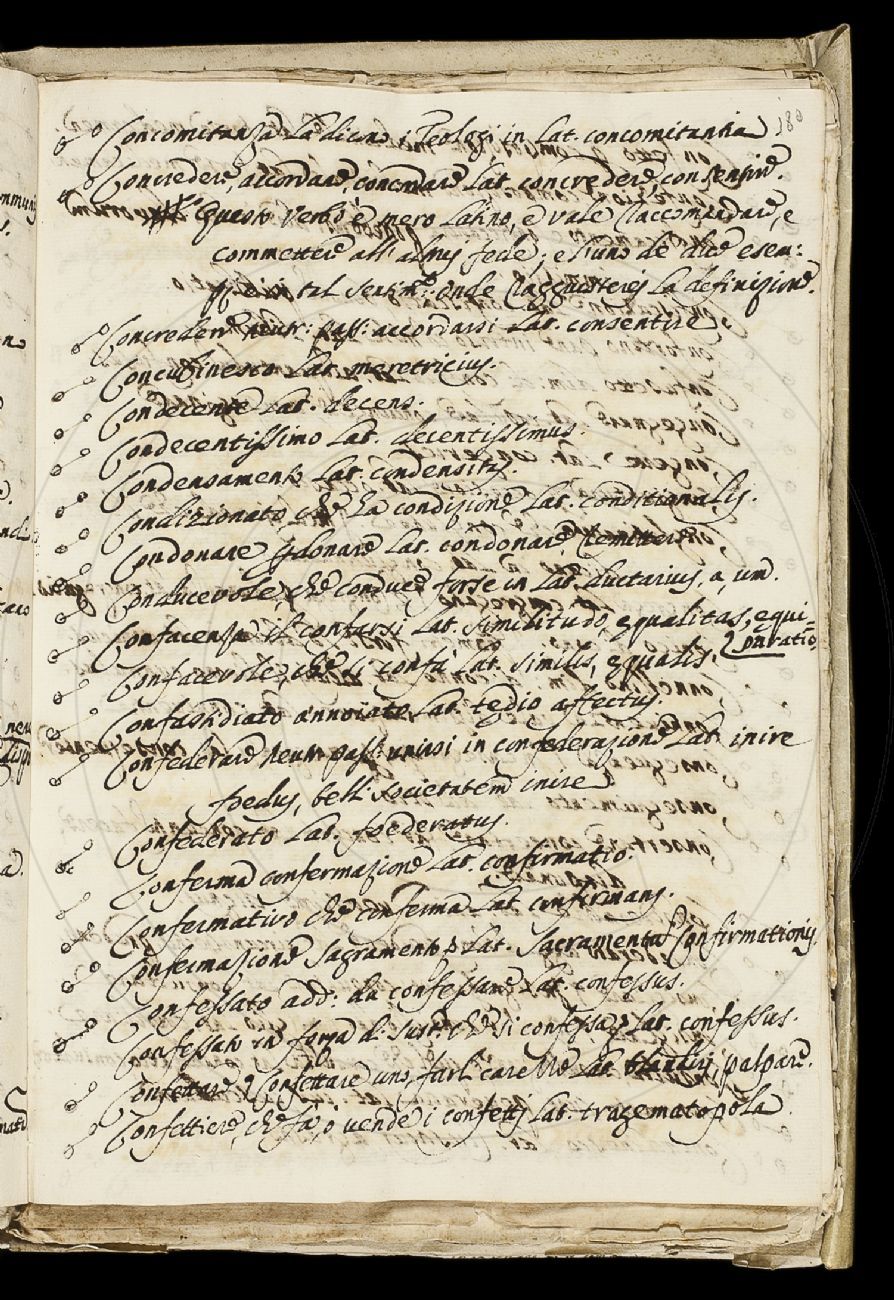 180
Concomitanza La dicno i Teologi in Lat. concomitantia
Concredere, accordare, concordare Lat. concredere, consentire.
Questo verbo è mero Latino, e vale raccomandare, e
commettere all' altrui fede; e l'uno de dice esem:
in tal sentim: onde la definizione.
Concredere neutr: pass: accordarsi Lat. consentire
Concubinesco Lat. meretricius.
Condecente Lat. decens.
Condecentissimo Lat. decentissimus.
Condensamento Lat. condensitas.
Condizionato, che ha condizione Lat. conditionalis.
Condonare perdonare Lat. condonare, remittere
Conducevole, che conduce forse in Lat. ductarius, a, um.
Confacenza il confarsi Lat. similitudo, equalitas, equi-
paratio
Confacevole, che si confà Lat. similis, equalis.
Confastidiato annoiato Lat. tedio affectus.
Confederare neutr pass: unirsi in confederazione Lat. inire
foedus, belli societatem inire
Confederato Lat. foederatus.
Conferma confermazione Lat. confirmatio.
Confermativo che conferma Lat confirmans.
Confermazione Sagramento Lat. Sacramentum Confirmationis.
Confessato add: da confessare Lat. confessus.
Confessato in forza di sust: che si confessa Lat. confessus.
Confettare Confettare uno, farli carezze Lat. blandiri, palpare.
Confettiere, che fà, ò vende i confetti Lat. tragematopola